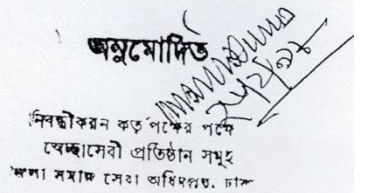 অনুমোদিত
নিবন্ধীকরন কর্তৃপক্ষের পক্ষে
স্বেচ্ছাসেবী প্রতিষ্ঠান সমূহ
জেলা সমাজ সেবা অধিদপ্তর, ঢাকা